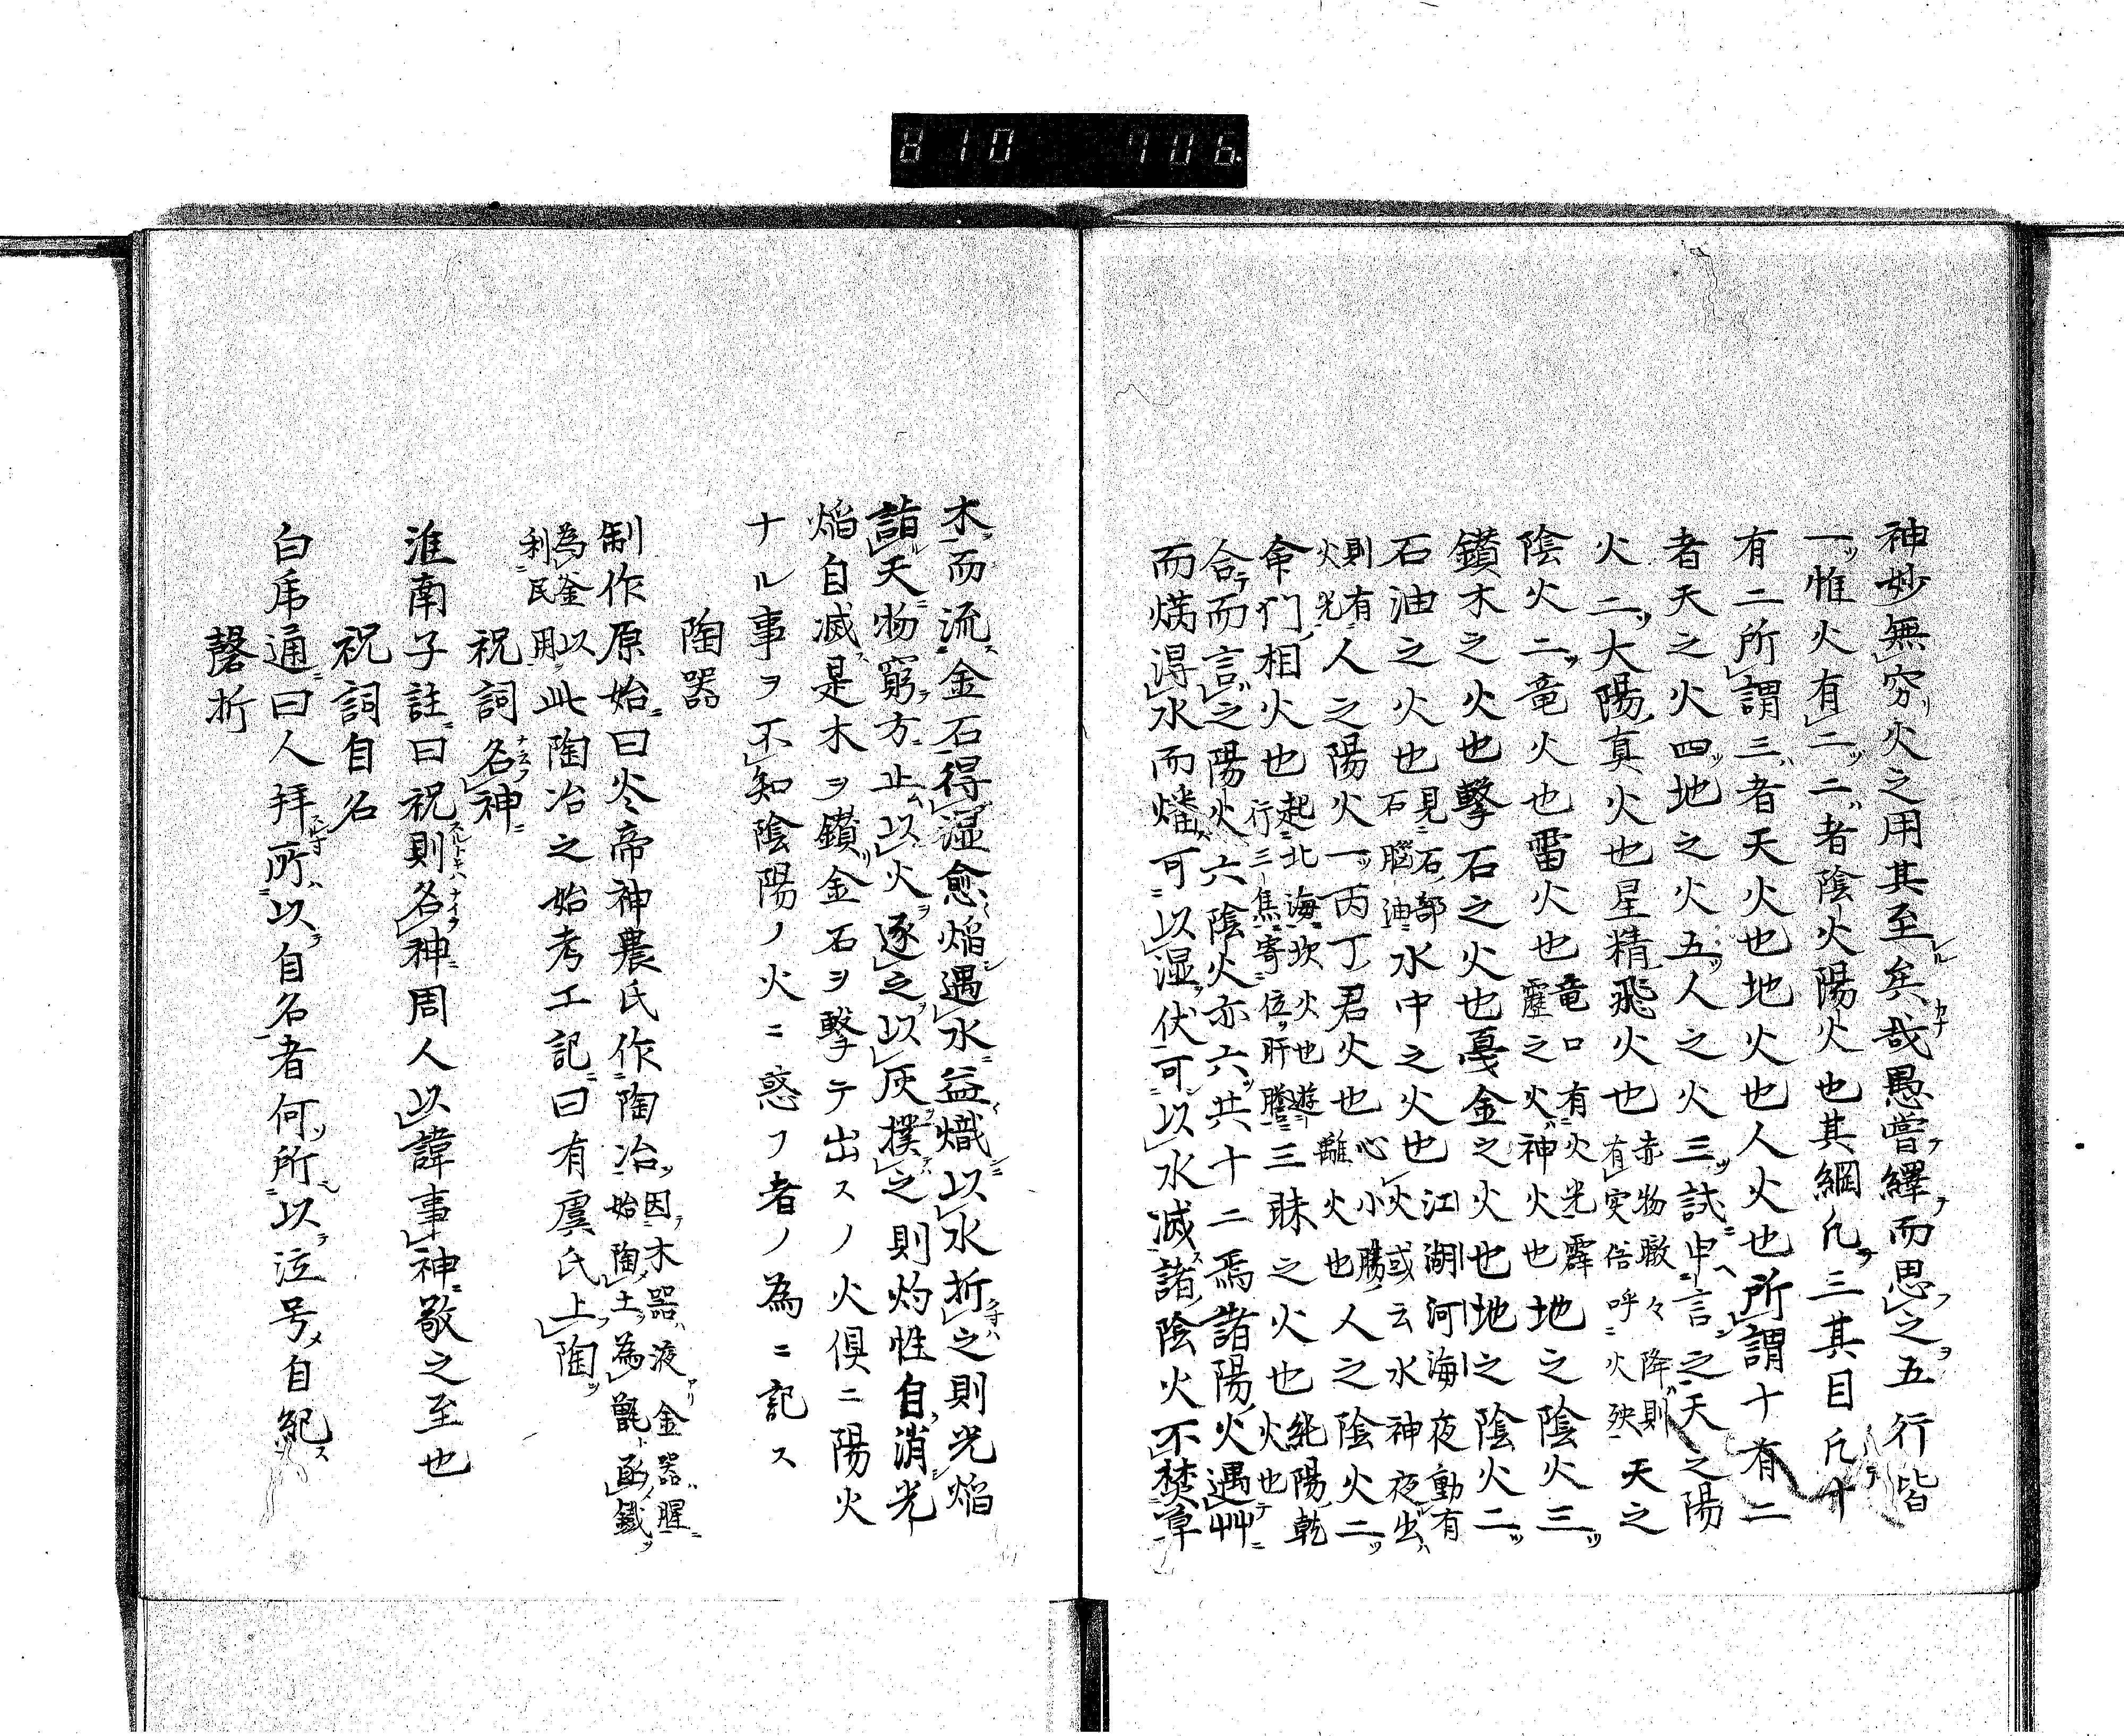 810 706.
神妙無窮火之用其至矣哉愚嘗繹而思之五行皆
一惟火有二二者陰火陽火也其綱凡三其目凡十
有二所謂三者天火也地火也人火也所謂十有二
者天之火四地之火五人之火三試申言之天之陽
火二大陽真火也星精飛火也赤物暾々降則有災倍呼火殃天之
陰火二竜火也雷火也竜口有火光霹靂之火神火也地之陰火三
鑽木之火也擊石之火也戛金之火也地之陰火二
石油之火也見石部石脳油水中之火也江湖河海夜動有火或云水神夜出
則有火光人之陽火一丙丁君火也心小腸離火也人之陰火二
命門相火也起北海坎火也遊行三焦寄位肝膽三昧之火也純陽乾火也
合而言之陽火六陰火亦六共十二焉諸陽火遇艸
而焫得水而燔可以湿伏可以水滅諸陰火不焚草
木而流金石得湿愈焔遇水益熾以水折之則光焔
詣天物窮方止以火逐之以灰撲之則灼性自消光
焔自滅是木ヲ鑚金石ヲ擊テ出スノ火倶ニ陽火
ナル事ヲ不知陰陽ノ火ニ惑フ者ノ為ニ記ス
陶器
制作原始曰炎帝神農氏作陶冶因木器液金器腥始陶土為甑函鐡
為釜以利民用此陶冶之始考工記曰有虞氏上陶
祝詞名神
淮南子註曰祝則名神周人以諱事神敬之至也
祝詞自名
白虎通曰人拜所以自名者何所以泣号自紀
磬折